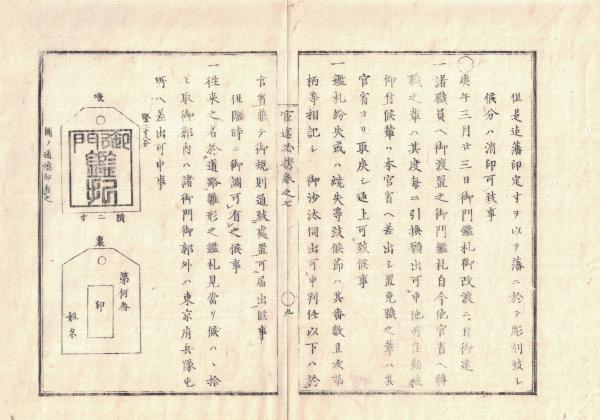 但是迄藩印定寸ヲ以テ藩ニ於テ彫刻致シ
候分ハ消印可致事
庚午三月廿三日御門鑑札御改渡ニ付御達
一諸職員ヘ御渡置之御門鑑札自今他官省ヘ轉
職之輩ハ其度毎ニ引換願出可申他所在勤被
仰付候輩ハ本官省ヘ差出シ置免職之輩ハ其
官省ヨリ取戻シ返上可致候事
一鑑札紛失或ハ焼失等致候節ハ其番数且次第
柄等相記シ御沙汰伺出可申判任以下ハ於
官途必携巻之七
九
官省兼テ御規則通致處置可届出候事
但臨時ニ御調可有之候事
一往来之者於道路雛形之鑑札見當リ候ハヽ拾
ヒ取御郭内ハ諸御門御郭外ハ東京府兵隊屯
所ヘ差出可申事
表
竪寸
御門鑑札
横二寸
圖ノ通焼印有之
裏
第何番
印
姓名